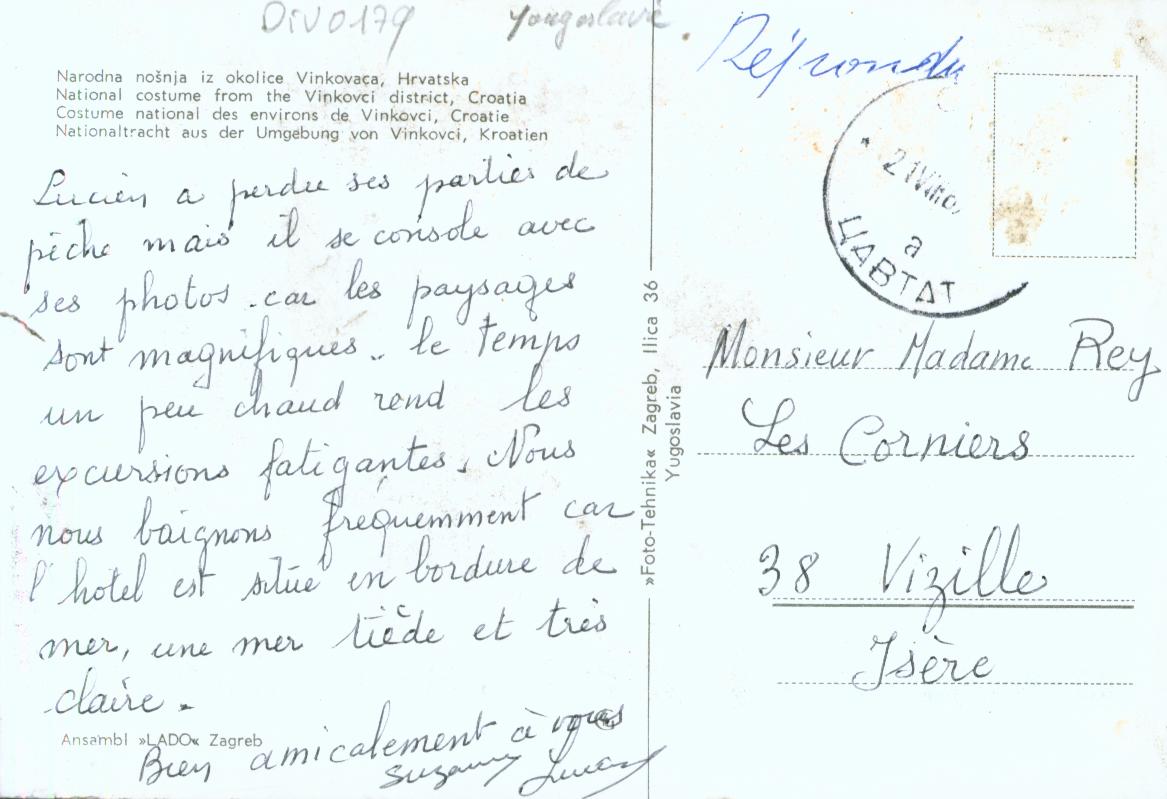 DIV0179
Yougoslavie
Narodna nošnja iz okolice Vinkovaca, Hrvatska
National costume from the Vinkovci district, Croatia
Costume national des environs de Vinkovci, Croatie
Nationaltracht aus der Umgebung von Vinkovci, Kroatien
Lucien a perdu ses parties de
pêche mais il se console avec
ses photos. car les paysages
sont magnifiques. le temps
un peu chaud rend les
excursions fatigantes. Nous
nous baignons fréquemment car
l'hôtel est situé en bordure de
mer, une mer tiède et très
claire.
Ansambl »LADO« Zagreb
Bien amicalement à vous
Suzanne Lucien
»Foto-Tehnika« Zagreb, Ilica 36
Yugoslavia
ЦАВТАТ
а
Monsieur Madame Rey
Les Corniers
38 Vizille
Isère